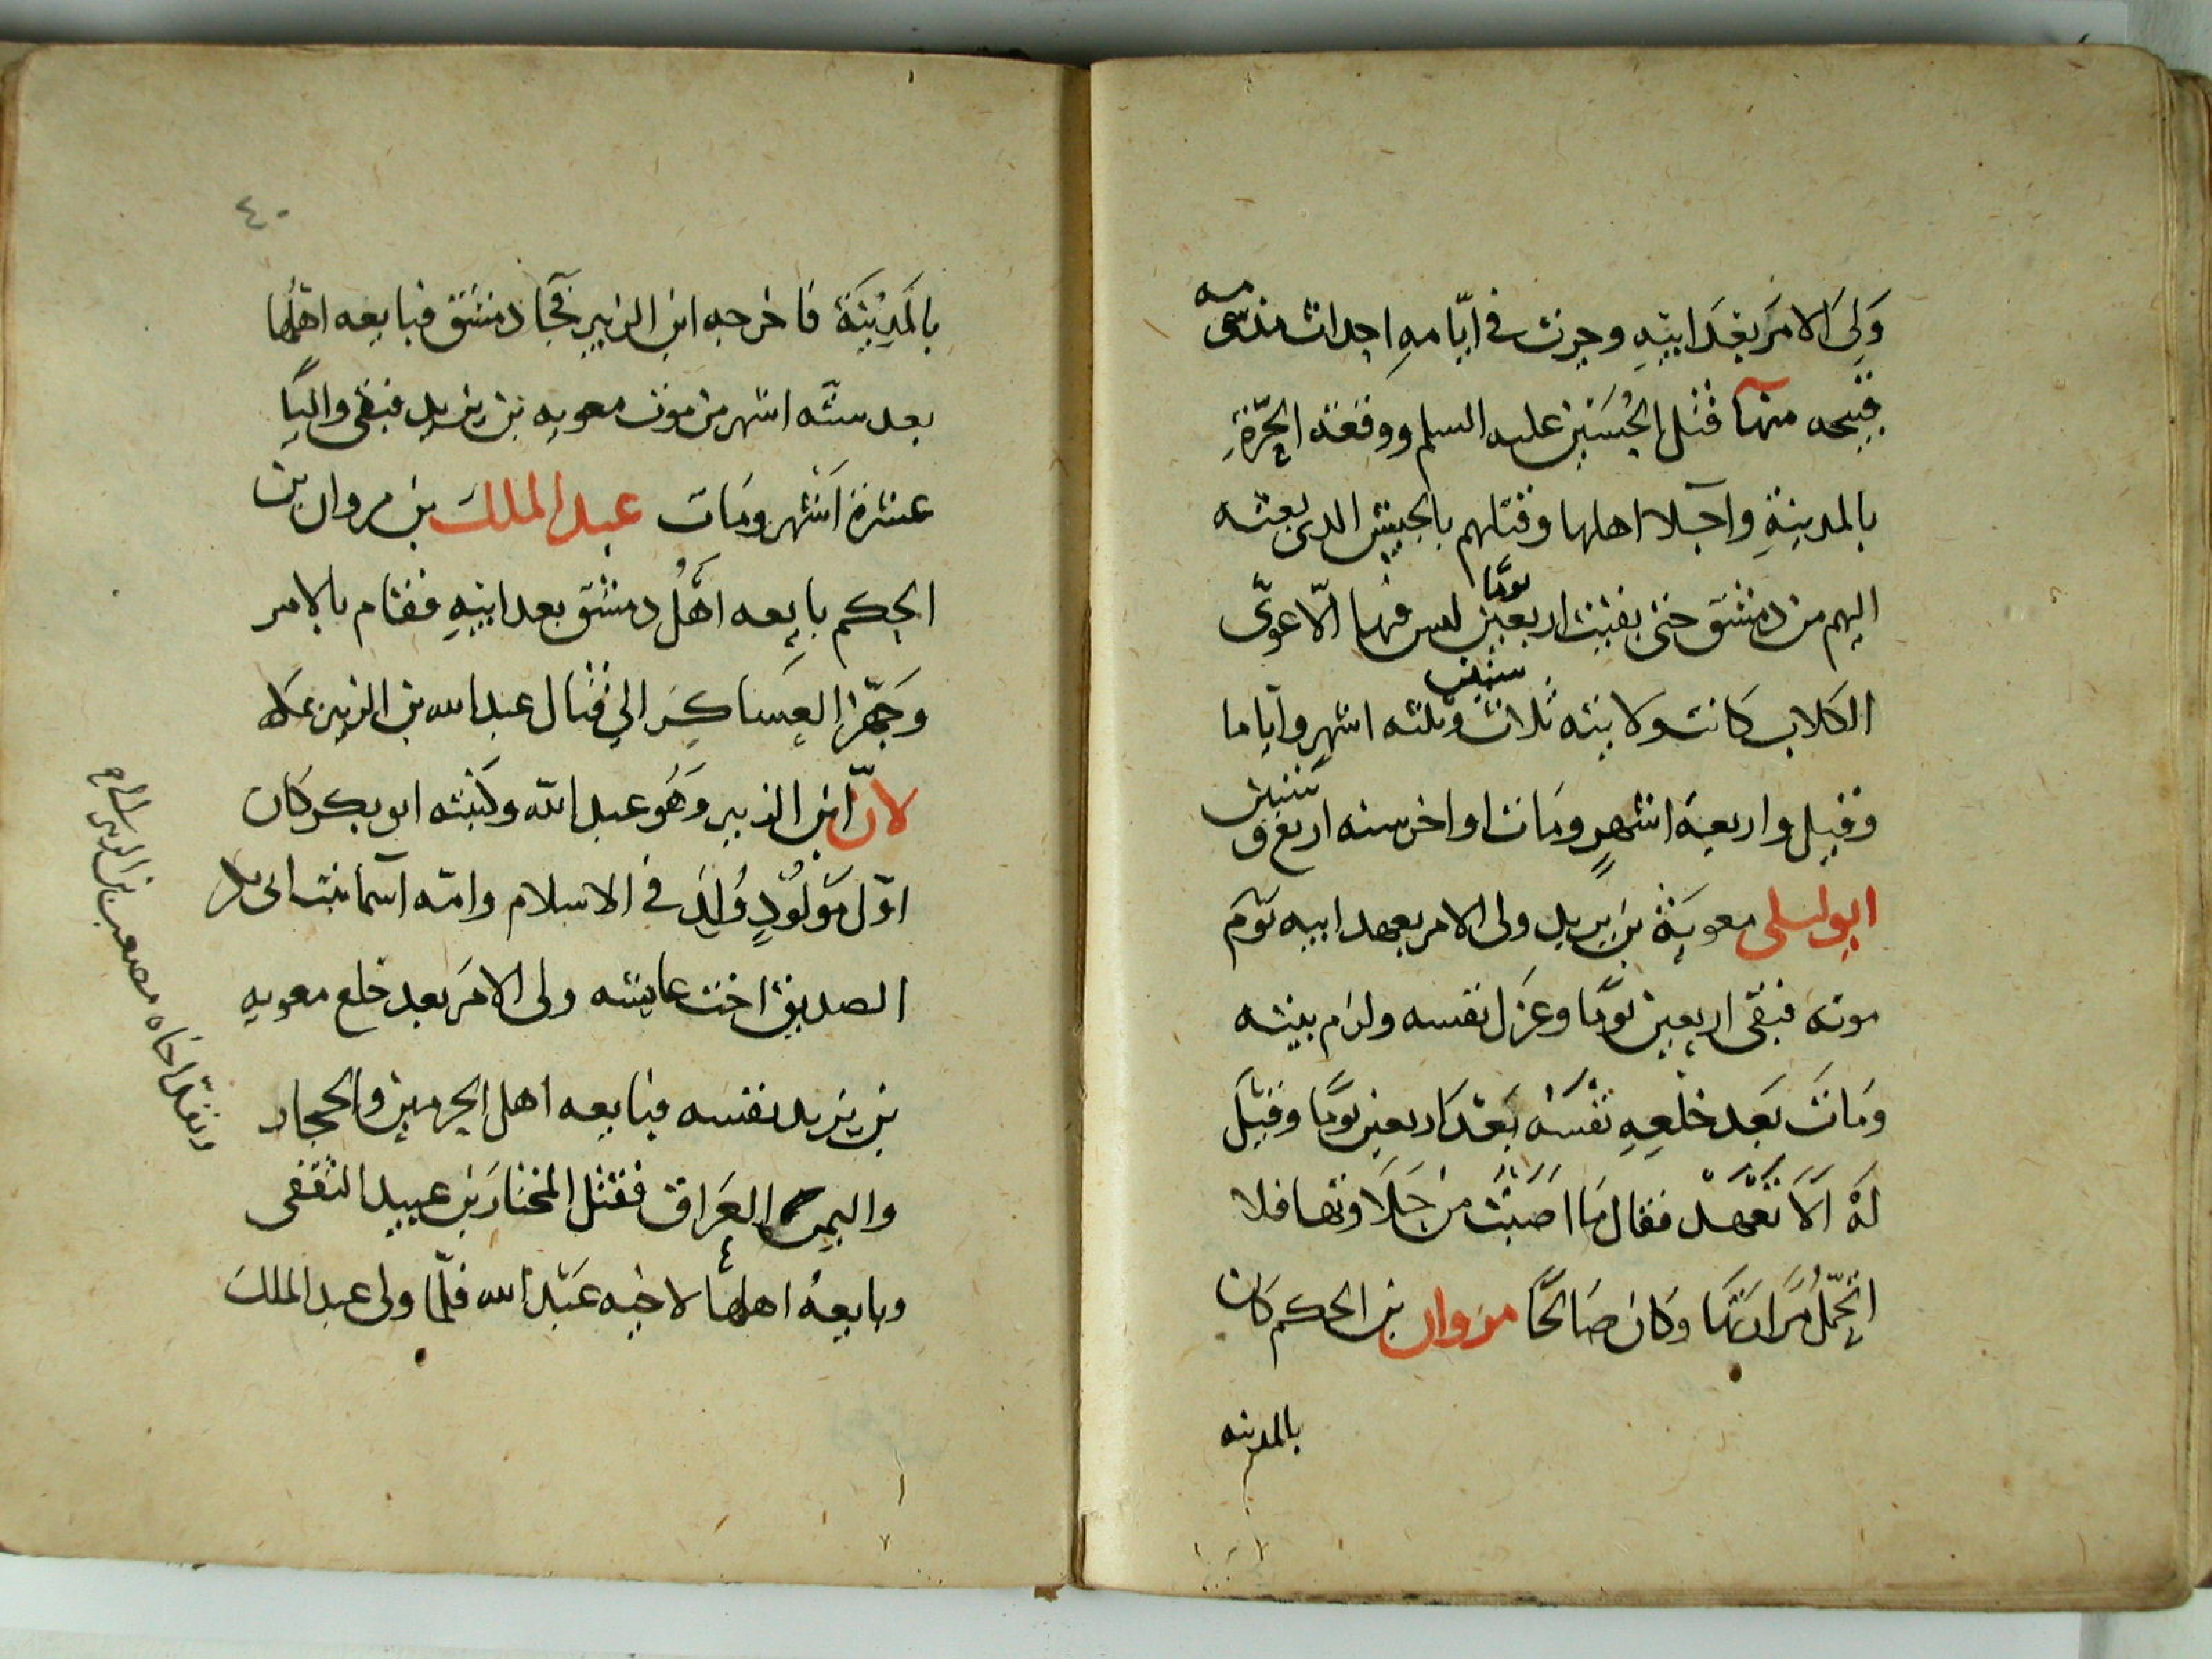 وَلِىَ الامَر بَعَدَ ابيْهِ وجرت فى ايّامهِ احداث
قبيحه منها قتل الحُسَيْن عليه السلم ووقعَة الحَرّةِ
بالمدينةِ واجلا اهلها وقتلهم بالجيش الدى بعثه
اليهم من دمشق حتى بقيت اربعين يومًا ليس فيها الّا عوى
الكلاب كانت ولايته ثلاث سنين وثلثه اشهر وايّاما
وقيل واربعة اشهرٍ ومات اواخر سنه اربع و ستين
ابو ليلى معويَة بن يزيد ولى الامر بعهد ابيه يوَم
موته فبقى اربعين يومًا وعزَل نفسه ولزم بيته
ومَاتَ بَعد خلْعِهِ نفْسَهُ بَعْدَ اربعين يومًا وقيْلَ
لَهُ الَا تَعْهَدْ فقال مَا اصَبْتُ من حَلَاوتها فلا
اتحمّلُ مَرَارَتهَا وكانَ صَالحًا مروان بن الحكم كان
بالمدينه
٤٠
بالمَدِيْنَة فاخرجه ابن الزبير فجَا دمشق فبايعه اهْلُها
بعد ستّه اشهر من موت معويه بن يزيد فبقى واليًا
عشرة اَشْهر ومَات عبد الملك بن مروان بن
الحكم بايعه اهْلُ دمشق بعد ابيْهِ فقام بالامر
وَجَهّزَ العسَاكِرَ الى قتال عبد الله بن الزبير بمكه
لانّ ابن الزبير وَهُو عبد الله وكنيته ابو بكر كان
اوّل مَوْلُوْدٍ وُلِدَ فى الاسلام وامّه اسمَا بنت ابى بكر
الصديق اخت عايشه ولى الامَر بعد خلع معويه
بن يزيد نفسه فبايعه اهل الحرمين والحجاز
واليمن والعَراق فقتل المختارَ بن عبيد الثقفى
وبايعهُ اهلها لاخيه عَبْد الله فلّما ولى عبد الملك
وبعَث اخاه مصعب بن الزبير الى